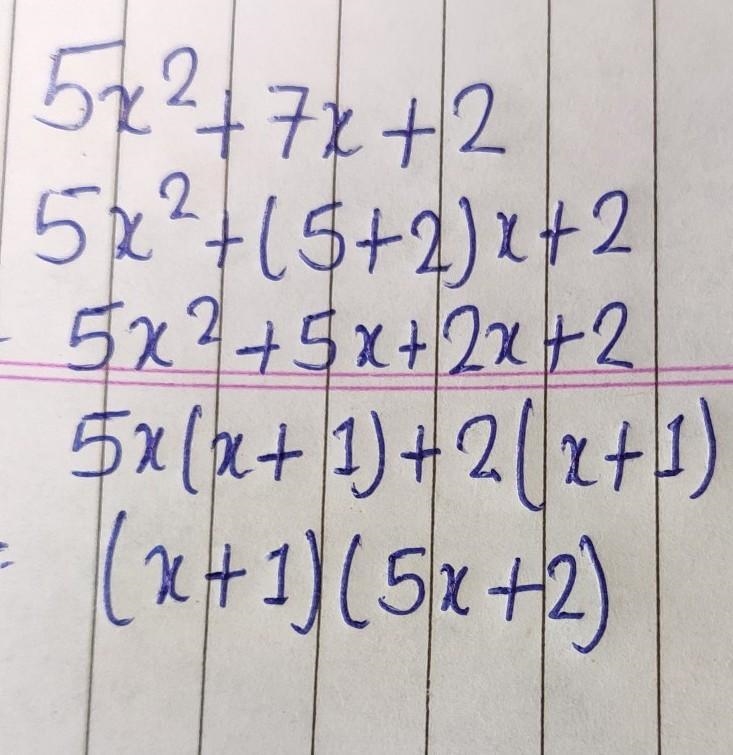 5x² + 7x + 2
5x² + (5+2)x + 2
5x² + 5x + 2x + 2
5x(x + 1) + 2(x + 1)
= (x + 1)(5x + 2)